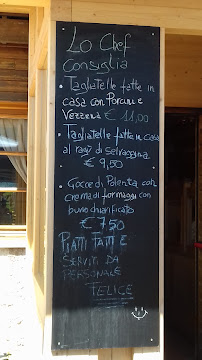 Lo Chef
Consiglia
• Tagliatelle fatte in
casa con Porcini e
Vezzena € 11,00
• Tagliatelle fatte in casa
al ragù di selvaggina
€ 9,50
• Gocce di Polenta con
crema di formaggi con
burro chiarificato
€ 7,50
PIATTI FATTI E
SERVITI DA
PERSONALE
FELICE